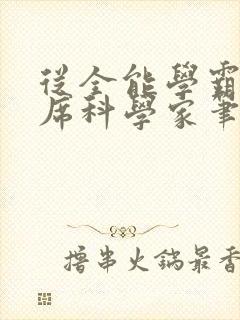 從全能學霸
席科學家筆
擼串火鍋最香